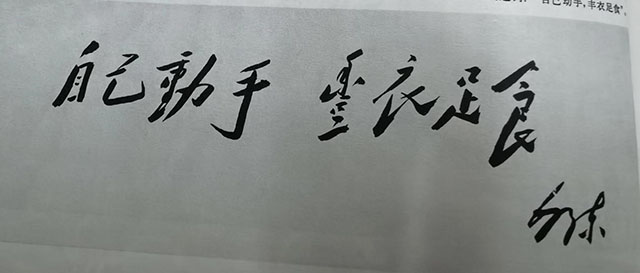 “自己动手,丰衣足食”。
自己動手 豐衣足食
泽东